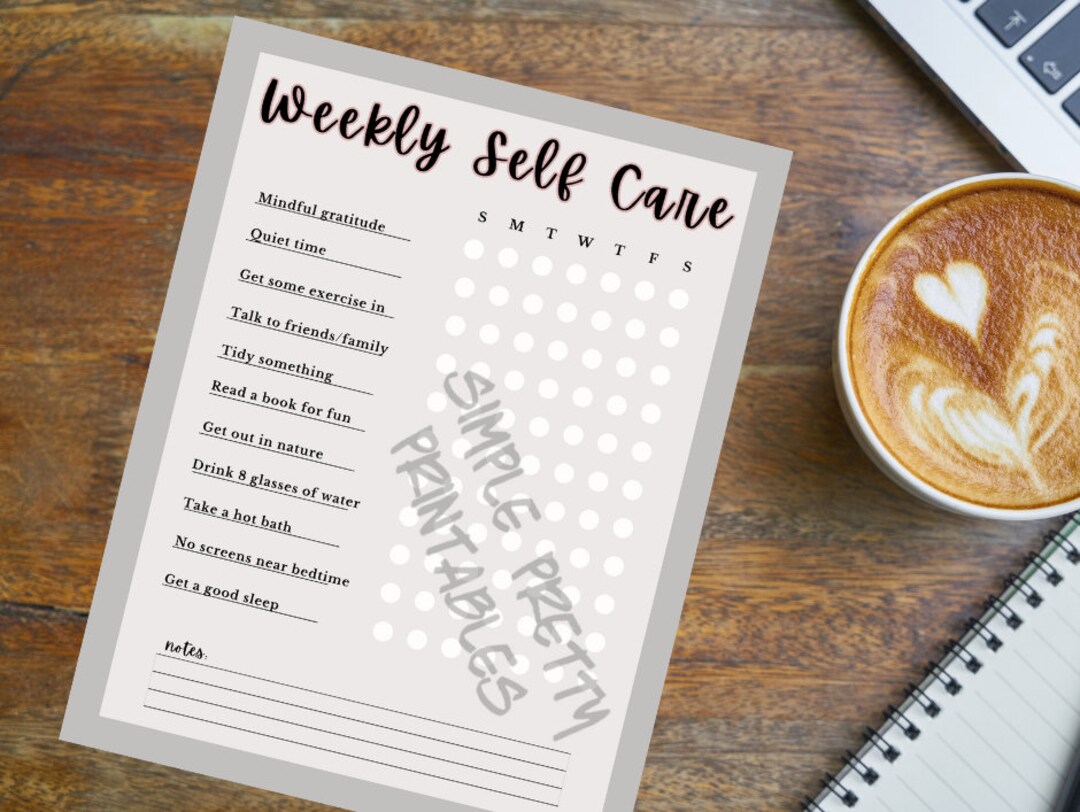 Weekly Self Care
S M T W T F S
Mindful gratitude
Quiet time
Get some exercise in
Talk to friends/family
Tidy something
Read a book for fun
Get out in nature
Drink 8 glasses of water
Take a hot bath
No screens near bedtime
Get a good sleep
notes:
SIMPLE PRETTY
PRINTABLES